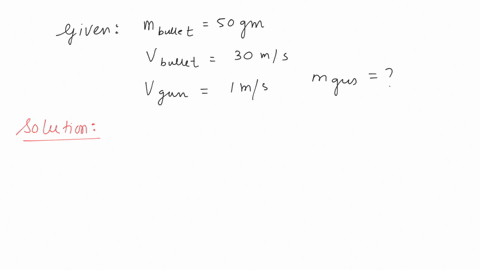 Given: m bullet = 50 gm
V bullet = 30 m/s
V gun = 1 m/s
m gus = ?
Solution: